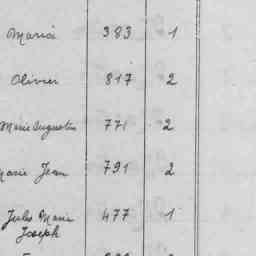 Maria 383 1
Olivier 817 2
Marie Augustin 771 2
Marie Jean 791 2
Jules Marie 477 1
Joseph